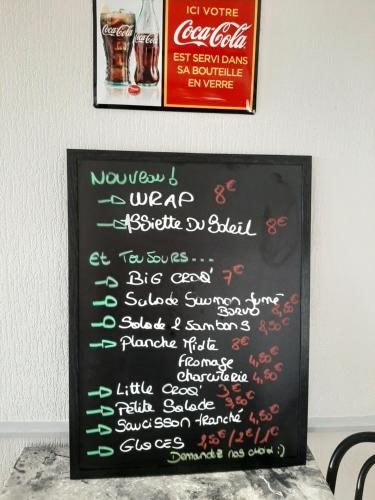 ICI VOTRE
Coca-Cola
EST SERVI DANS
SA BOUTEILLE
EN VERRE
Coca-Cola
Coca-Cola
NOUVEAU!
WRAP 8€
Assiette Du Soleil 8€
ET TOUJOURS...
BIG CROQ' 7€
Salade Saumon fumé
BOEUF 8,50€
Salade 2 Jambons 8,50€
Planche Mixte 8€
fromage 4,50€
charcuterie 4,50€
Little CROQ' 3€
Petite Salade 3,50€
Saucisson tranché 4,50€
GLACES 2,50€/2€/1€
Demandez nos choix :)